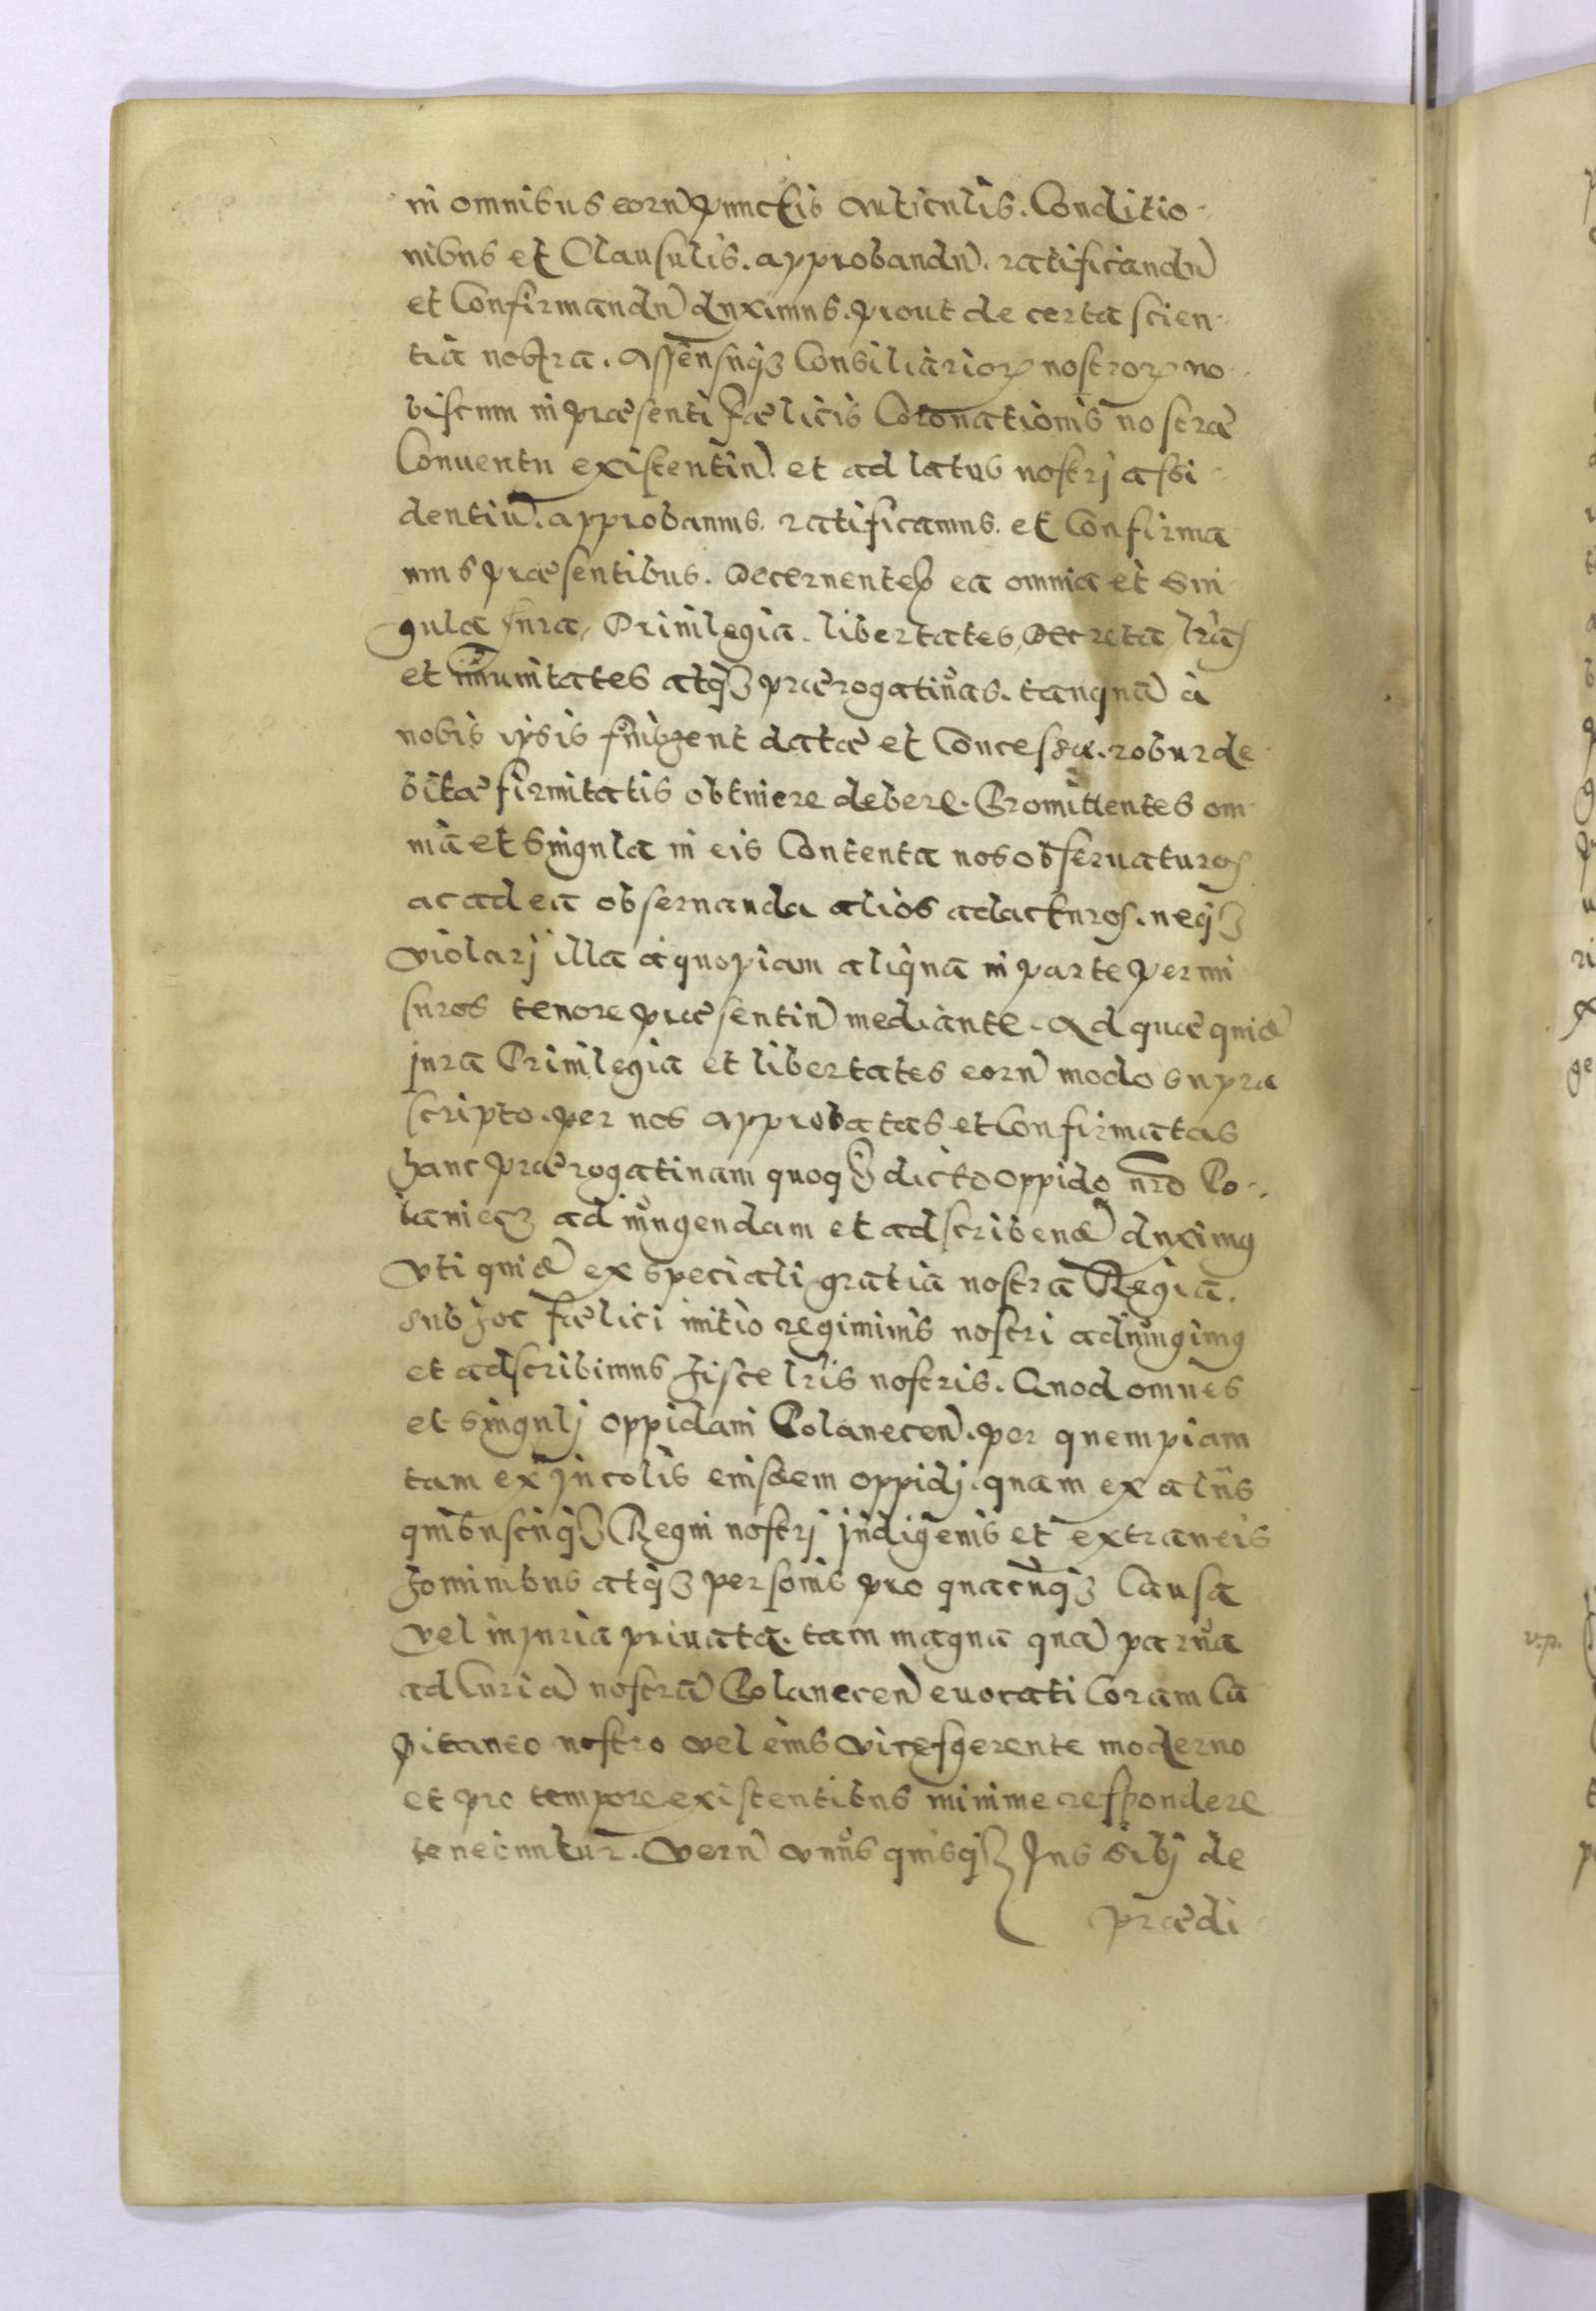 in omnibus eorū punctis Articulis. Conditio-
nibus et Clausulis. approbandū. ratificandū
et Confirmandū duximus. prout de certa scien-
tia nostra. Assensuq₃ Consiliarioꝝ nostroꝝ no-
biscum in præsenti fælicis Coronationis nostræ
Conuentu existentiū. et ad latus nostrj assi-
dentiū. approbamus. ratificamus. et Confirma
mus præsentibus. Decernentes ea omnia et Sin-
gula Jura, Priuilegia. libertates, Decreta lras
et im̄unitates atq₃ prærogatiuas. tanquā à
nobis ipsis fuissent datæ et Concessæ. robur de-
bitæ firmitatis obtinere debere. Promittentes om-
nia et Singula in eis Contenta nos obseruaturos
ac ad ea obseruanda alios adacturos. neq₃
violarj illa à quopiam aliqua in parte permi
suros tenore præsentiū mediante. Ad quæ quidē
jura Priuilegia et libertates eorū modo supra
scripto. per nos approbatas et Confirmatas
hanc prærogatiuam quoq₃ dicto oppido nr̄o Po-
laniecz ad iungendam et adscribendā duximꝰ
vti quidē ex speciali gratia nostra Regia.
sub hoc fælici initio regiminis nostri adiungimꝰ
et adscribimus hisce lr̄is nostris. Quod omnes
et singulj oppidani Polanecen̄. per quempiam
tam ex jncolis eiusdem oppidj. quam ex aliis
quibuscunq₃ Regni nostrj jndigenis et extraneis
hominibus atq₃ personis pro quacunq₃ Causa
vel injuria priuata. tam magna quā parua
ad Curiā nostrā Polanecen̄ euocati Coram Ca
pitaneo nostro vel eius vicesgerente moderno
et pro tempore existentibus minime respondere
tenebuntur. Verū vnus quisq₃ Jus sibj de
prædi-